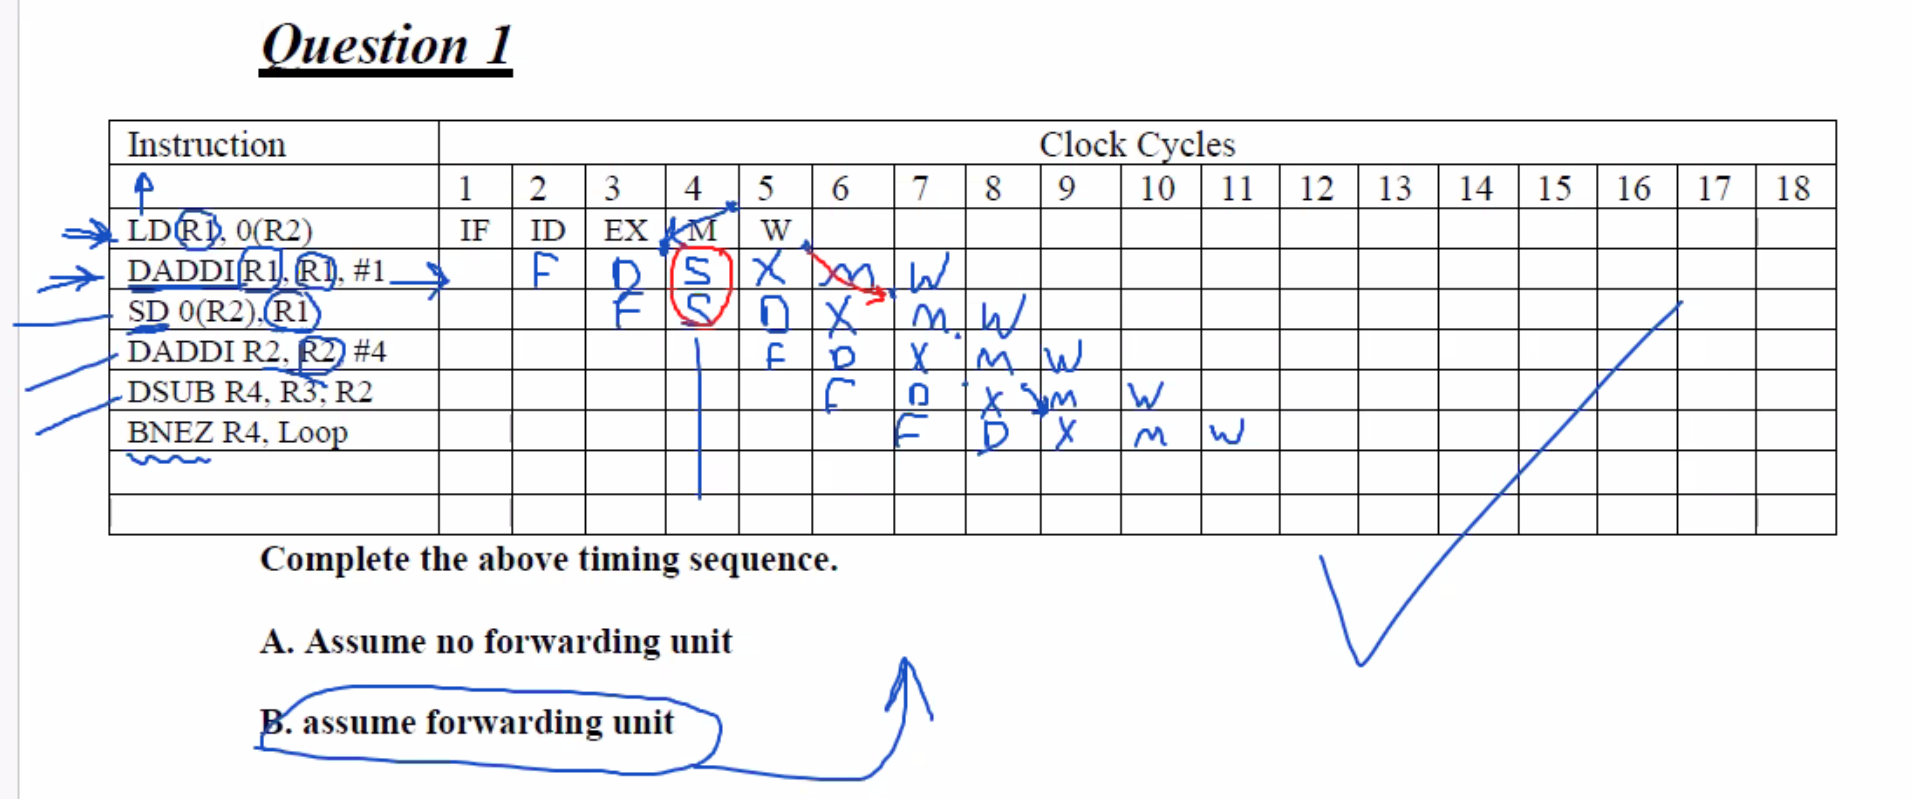 Question 1
Instruction Clock Cycles
1 2 3 4 5 6 7 8 9 10 11 12 13 14 15 16 17 18
LD R1, 0(R2) IF ID EX M W
DADDI R1, R1, #1 F D S X M W
SD 0(R2), R1 F S D X M W
DADDI R2, R2, #4 F D X M W
DSUB R4, R3, R2 F D X M W
BNEZ R4, Loop F D X M W
Complete the above timing sequence.
A. Assume no forwarding unit
B. assume forwarding unit